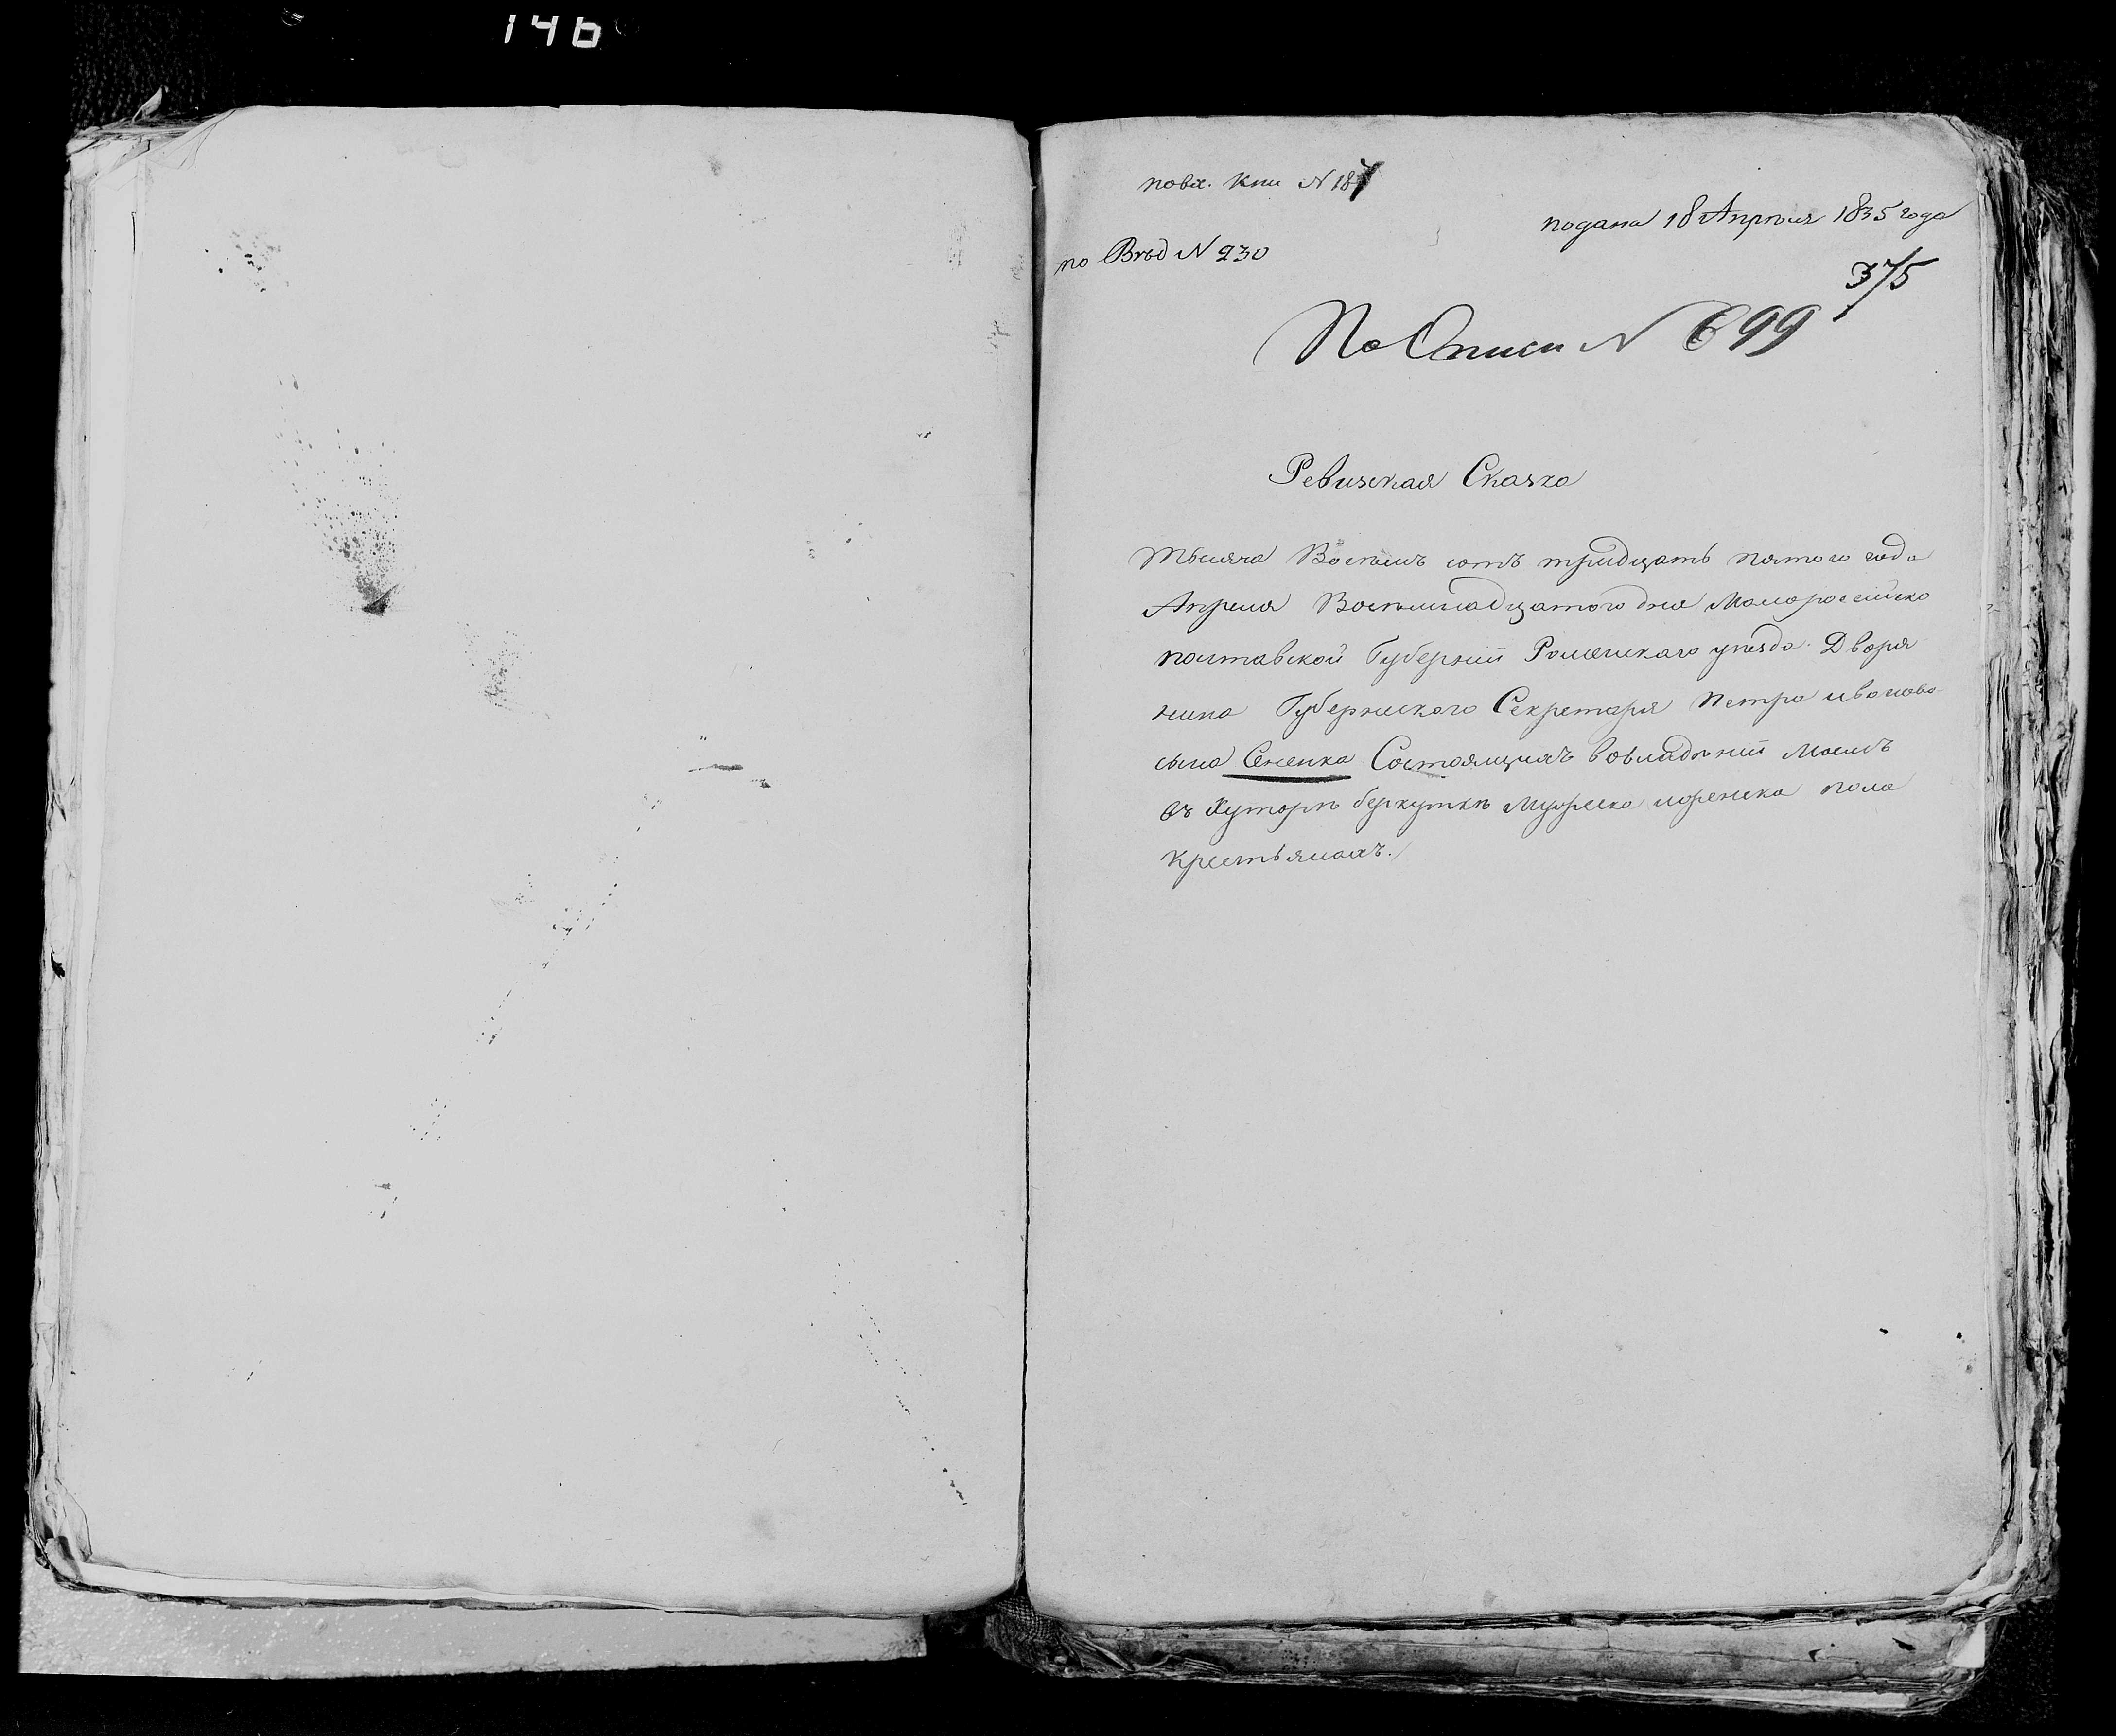 146
повх. Кни N 187
подана 18 Апрѣля 1835 года
по Вѣд N 230
375
По Описи N 699
Ревизская Сказка
Тысяча Восемь сотъ тридцать пятого года
Апреля Восемнадцатого дня Малоросейско
полтавской Губерний Роменского уѣзда Дворя
нина Губернского Секретаря Петра ивонова
сына Сененка Состоящихъ вовладѣний Моемъ
въ Хуторѣ беркуткѣ Мужеска иженска пола
Крестьянахъ.